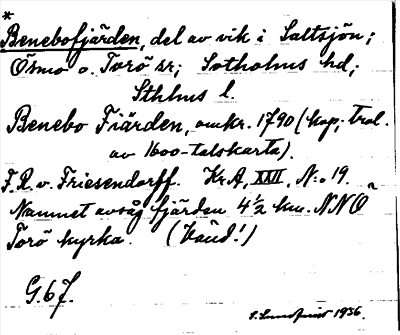 *
Benebofjärden, del av vik i Saltsjön;
Ösmo o. Torö sr; Sotholms hd;
Sthlms l.
Benebo Fiärden, omkr. 1790 (kop; trol.
av 1600-talskarta).
F.R.v. Friesendorff. Kr.A, XXII, N:o 19.
Namnet avsåg fjärden 4 1/2 km. NNÖ
Torö kyrka. (Känd!)
G.67.
S. Lundqvist 1936.